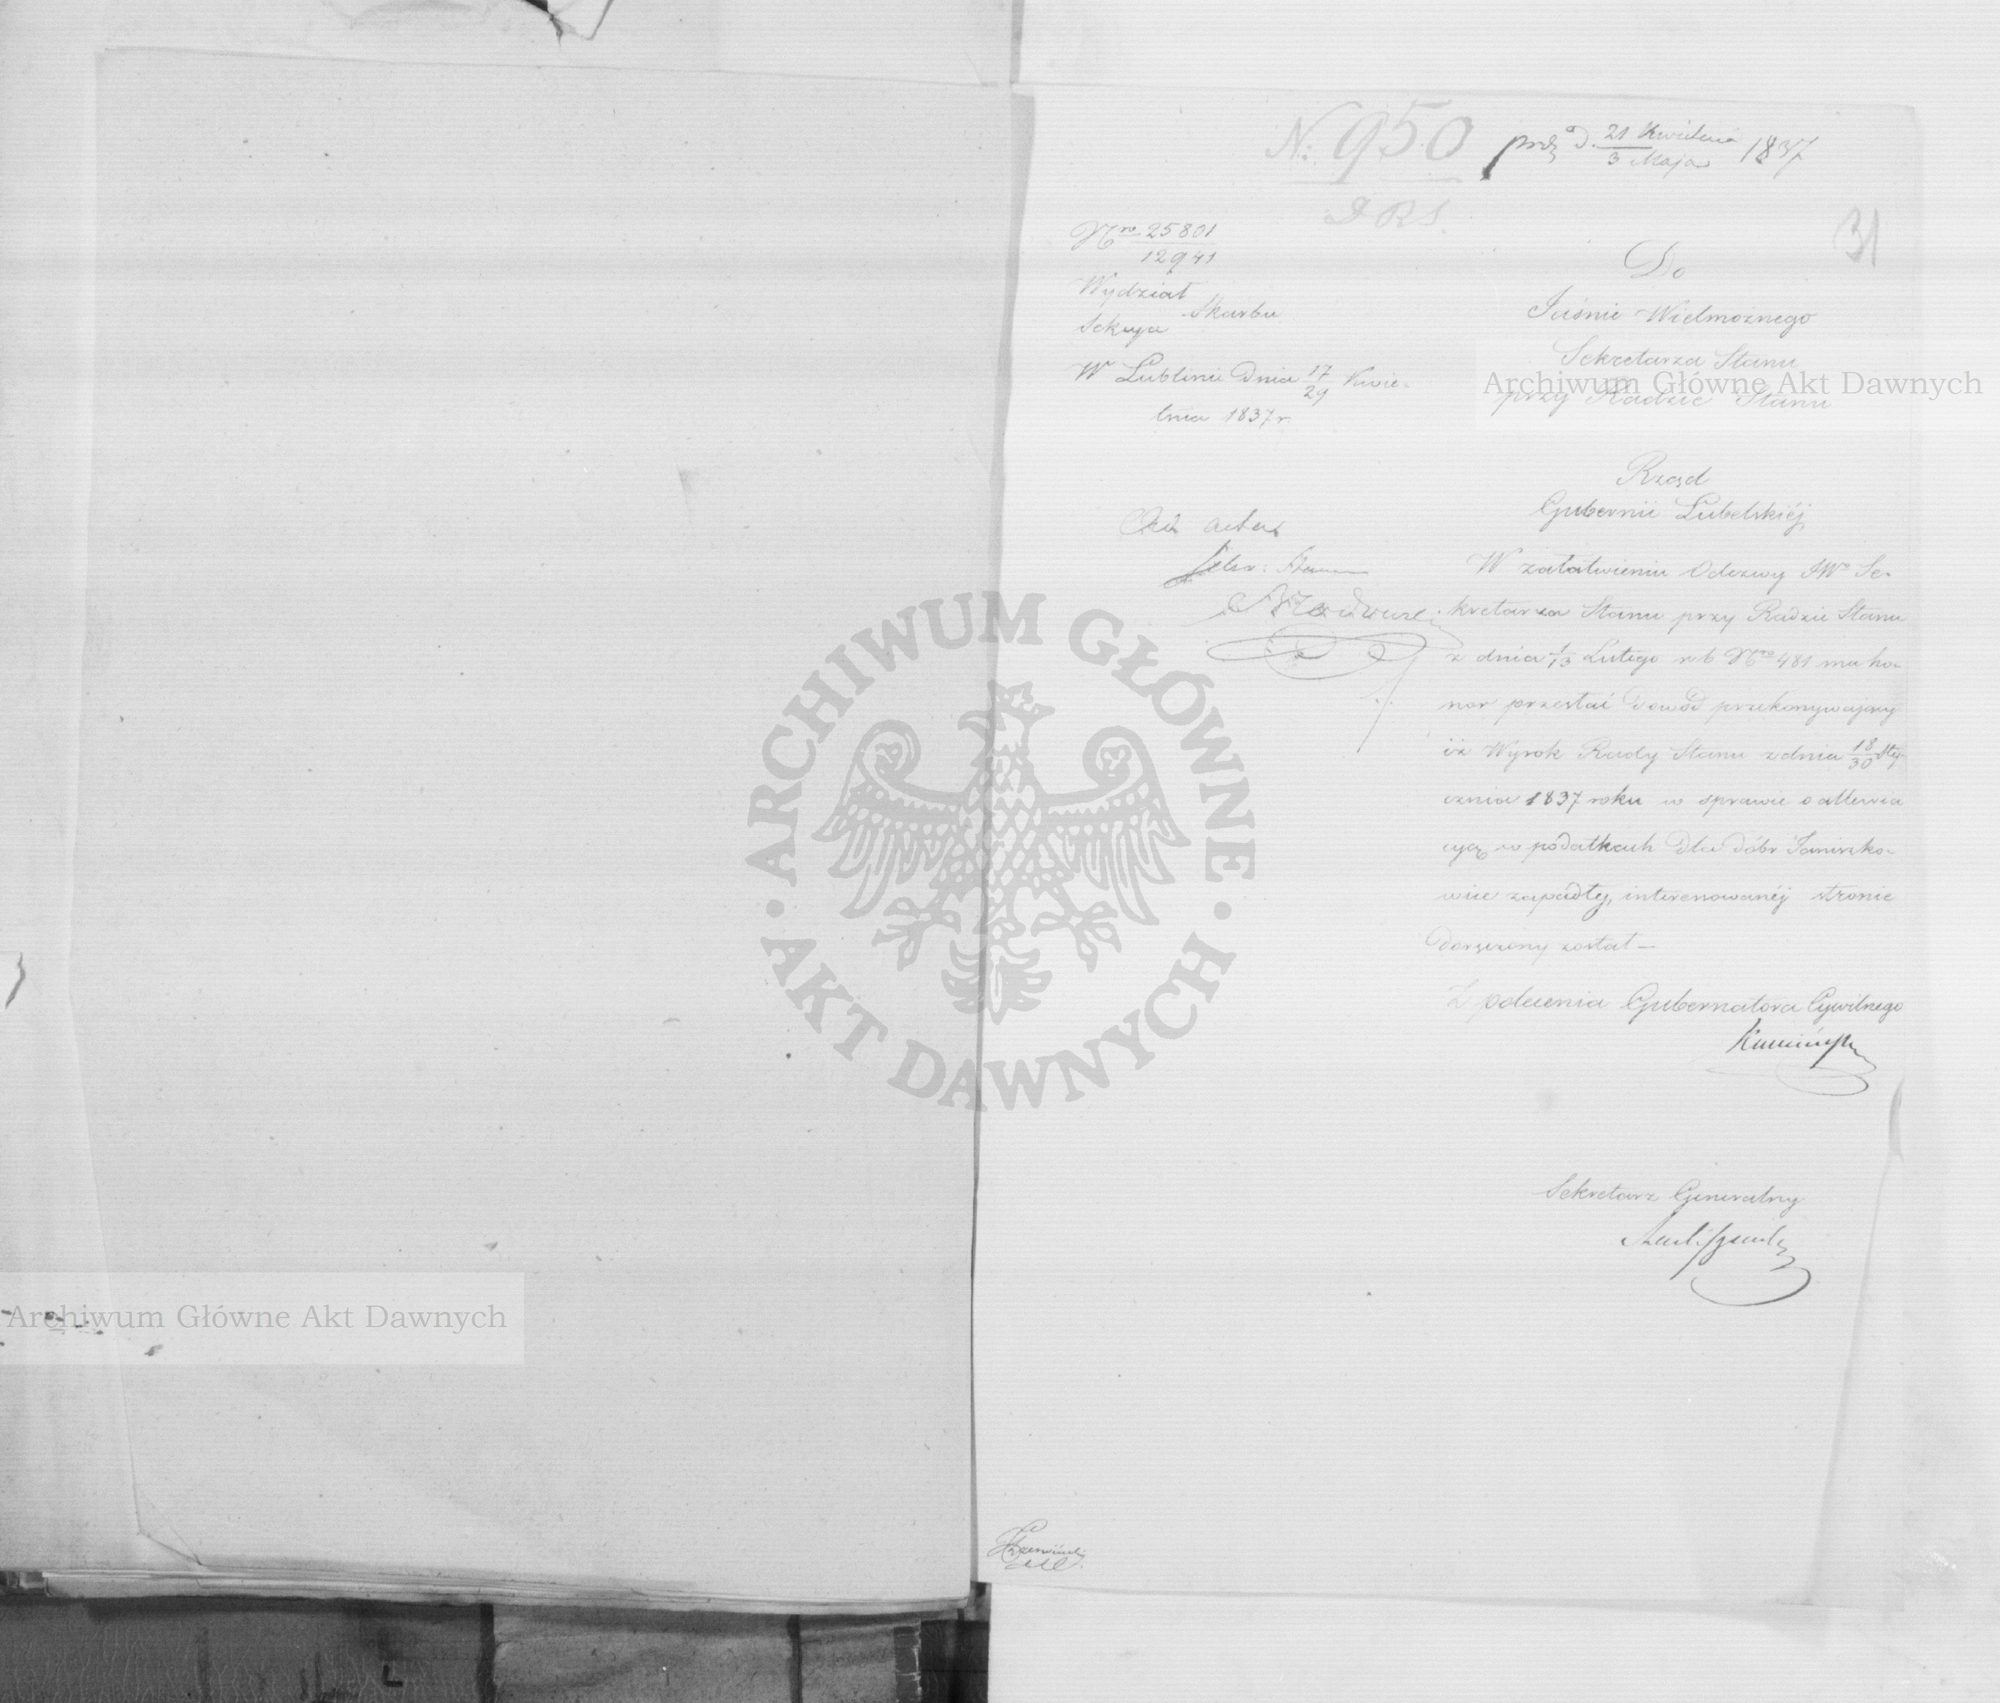 N: 950
D R S.
prz D. 21 Kwietnia / 3 Maja 1837
31
Nro 25801 / 12941
Wydział
Skarbu
Sekcya
W Lublinie Dnia 17/29 Kwie-
tnia 1837 r.
Do
Jaśnie Wielmożnego
Sekretarza Stanu
przy Radzie Stanu
Rząd
Gubernii Lubelskiéj,
W załatwieniu Odezwy JWo Se-
kretarza Stanu przy Radzie Stanu
z dnia 1/13 Lutego r b Nro 481 ma ho-
nor przesłać dowód przekonywający
iż Wyrok Rady Stanu z dnia 18/30 Sty-
cznia 1837 roku w sprawie o allewia
cyą w podatkach dla dóbr Janiszko-
wice zapadły, interesowanéj stronie
doręczony został —
Z polecenia Gubernatora Cywilnego
Kamiński
Sekretarz Generalny
acta
Archiwum Główne Akt Dawnych
Archiwum Główne Akt Dawnych
ARCHIWUM GŁÓWNE
AKT DAWNYCH